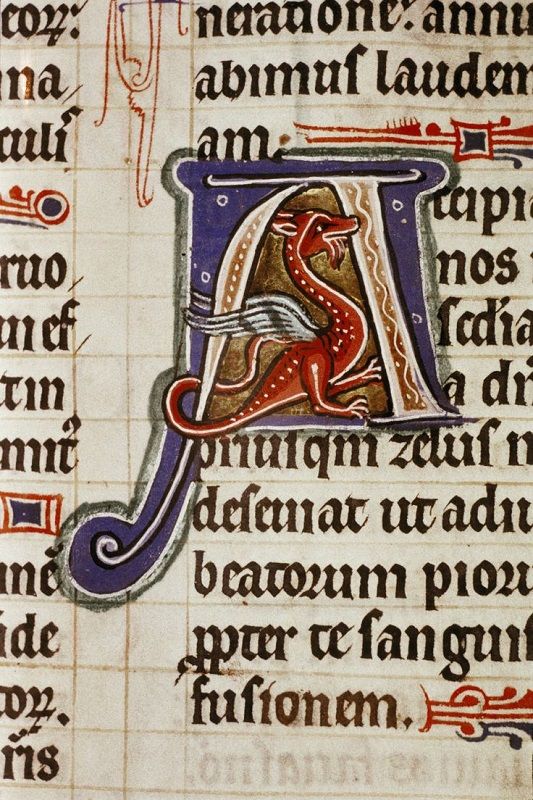 eoꝝ:
na
culi
ruo
ui eſ
tin
mit᷑
nē
ide
toꝝ.
ris
neratione: annu
abimuſ laudem
am.
Accipi
nos
a dn̄
priuſqm zeluſ
deſeuiat ut adu
beatorum pioru
ꝓpter te ſanguiſ
fuſionem.